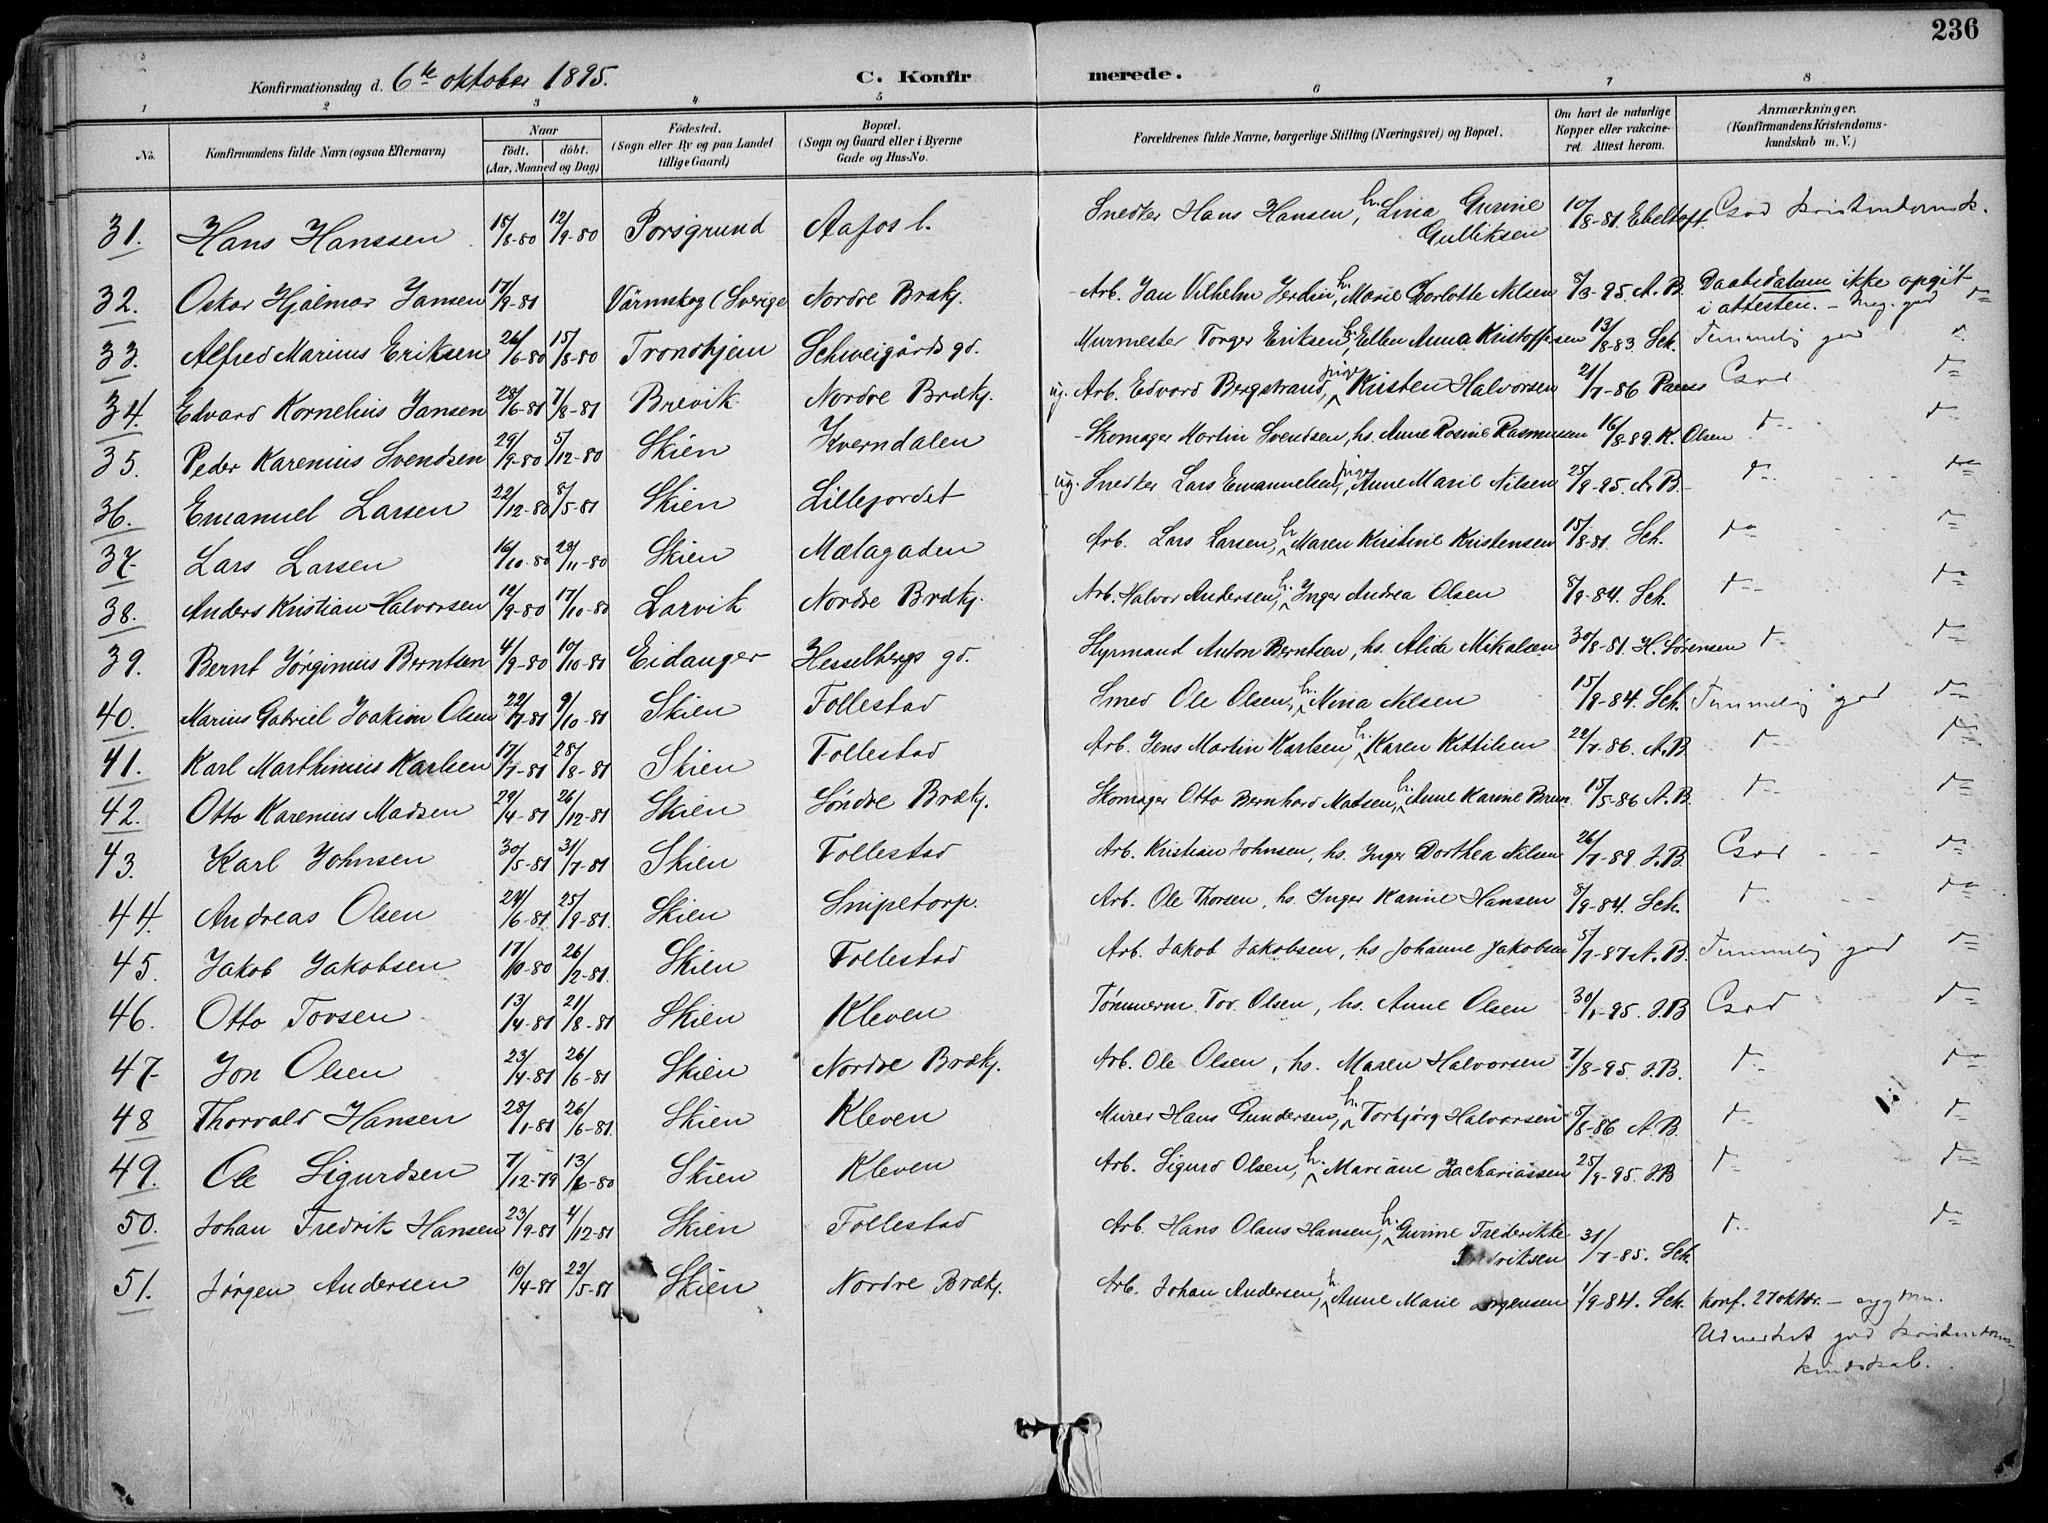 236
Konfirmationsdag d. 6te oktober 1895. C. Konfirmerede.
1 2 3 4 5 6 7 8
No. Konfirmandens fulde Navn (ogsaa Efternavn) Naar født. døbt. (Aar, Maaned og Dag) Fødested. (Sogn eller By og paa Landet tillige Gaard) Bopæl. (Sogn og Gaard eller i Byerne Gade og Hus-No. Forældrenes fulde Navne, borgerlige Stilling (Næringsvei) og Bopæl. Om havt de naturlige Kopper eller vakcineret. Attest herom. Anmærkninger. (Konfirmandens Kristendomskundskab m. V.)
31. Hans Hanssen 18/8-80 12/9-80 Porsgrund Aafos l. Snedker Hans Hansen, h. Lina Gurine Gulliksen 10/8-81. Ebeltoft. God kristendomsk.
32. Oskar Hjalmar Jansen 17/9-81 Värmskog (Sverige Nordre Brækj. Arb. Jan Vilhelm Jerdin, h. Marie Charlotte Nilsen 8/3-95. A.B. Daabsdatum ikke opgit i attesten. - Meg. god d=
33. Alfred Marius Eriksen 26/6-80 15/8-80 Trondhjem Schweigårds gd. Murmester Torger Eriksen, h. Ellen Anna Kristoffersen 13/8-83. Sch. Temmelig god d.
34. Edvard Kornelius Jansen 28/6-81 7/8-81 Brevik Nordre Brækj. ug. Arb. Edvard Bergstrand, pige Kirsten Halvorsen 21/7-86 Paus God d=
35. Peder Karenius Svendsen 29/9-80 5/12-80 Skien Kverndalen Skomager Martin Svendsen, hs. Anne Rosine Rasmussen 16/8-89. K. Olsen d- d=
36. Emanuel Larsen 22/12-80 8/5-81 Skien Lillejordet ug. Snedker Lars Emanuelsen, pige Anne Marie Nilsen 25/9-95. A.B. d- d=
37. Lars Larsen 16/10-80 28/11-80 Skien Mælagaden Arb. Lars Larsen, h. Maren Kirstine Kristensen 15/8-81. Sch. d= d=
38. Anders Kristian Halvorsen 12/9-80 17/10-80 Larvik Nordre Brækj. Arb. Halvor Andersen, h. Inger Andrea Olsen 8/9-84. Sch. d- d=
39. Bernt Jørginius Berntsen 4/9-80 10/10-81 Eidanger Hesselbergs gd. Styrmand Anton Berntsen, hs. Alida Mikalsen 30/8-81. H. Sørensen d- d=
40. Marius Gabriel Joakim Olsen 22/7-81 9/10-81 Skien Follestad Smed Ole Olsen, h. Mina Nilsen 15/9-84. Sch. Temmelig god d=
41. Karl Marthinius Karlsen 17/7-81 28/8-81 Skien Follestad Arb. Jens Martin Karlsen, h. Karen Kittilsen 22/7-86. A.B. d- d=
42. Otto Karenius Madsen 29/4-81 26/12-81 Skien Søndre Brækj. Skomager Otto Bernhard Madsen, h. Anne Karine Brun 15/5-86 A.B. d- d=
43. Karl Johnsen 30/5-81 31/7-81 Skien Follestad Arb. Kristian Johnsen, hs. Inger Dorthea Nilsen 26/7-89 J.B. God d=
44. Andreas Olsen 24/6-81 25/9-81. Skien Snipetorp. Arb. Ole Thorsen, hs. Inger Karine Hansen 8/9-84. Sch. d- d=
45. Jakob Jakobsen 17/10-80 26/2-81. Skien Follestad Arb. Jakob Jakobsen, hs Johanne Jakobsen 5/7-87 A.B. Temmelig god d=
46. Otto Torsen 13/4-81 21/8-81 Skien Kleven Tømmerm. Tor. Olsen, hs. Anne Olsen 30/1-95. J.B. God d=
47. Jon Olsen 23/4-81 26/6-81 Skien Nordre Brækj. Arb. Ole Olsen, hs. Maren Halvorsen 7/8-95. J.B. d- d=
48 Thorvald Hansen 28/1-81 26/6-81. Skien Kleven Murer Hans Gundersen, h. Torbjørg Halvorsen 8/8-86 A.B. d- d=
49. Ole Sigurdsen 7/12-79 13/6-80 Skien Kleven Arb. Sigurd Olsen, h. Mariane Zachariassen 25/9-95. J.B d- d=
50. Johan Fredrik Hansen 23/9-81 4/12-81 Skien Follestad Arb. Hans Olaus Hansen, h. Gurine Frederikke Fredriksen 31/7-85. Sch. d- d=
51. Jørgen Andersen 10/4-81 22/5-81 Skien Nordre Brækj. Arb. Johan Andersen, h. Anne Marie Jørgensen 1/9-84. Sch. Konf. 27 oktbr. -
Udmerket god kristendoms-
kundskab.